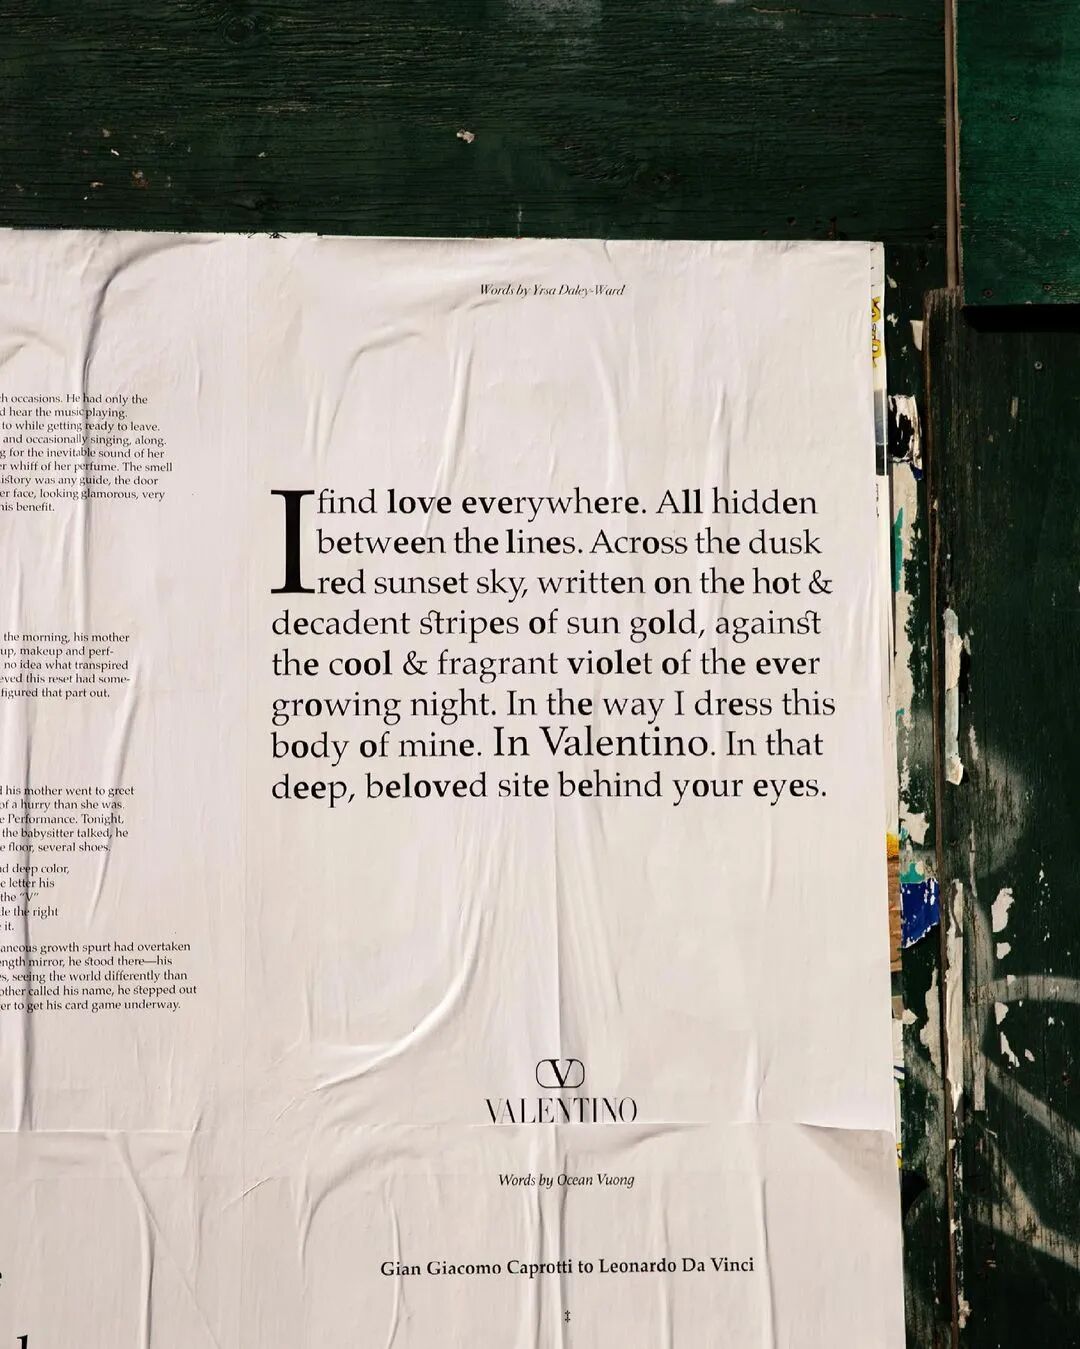 Words by Yrsa Daley-Ward
h occasions. He had only the
d hear the music playing.
to while getting ready to leave.
and occasionally singing, along.
g for the inevitable sound of her
r whiff of her perfume. The smell
istory was any guide, the door
er face, looking glamorous, very
his benefit.
the morning, his mother
up, makeup and perf-
no idea what transpired
eved this reset had some-
figured that part out.
d his mother went to greet
of a hurry than she was.
e Performance. Tonight,
the babysitter talked, he
e floor, several shoes.
nd deep color,
e letter his
the “V”
le the right
it.
aneous growth spurt had overtaken
ength mirror, he stood there—his
s, seeing the world differently than
other called his name, he stepped out
er to get his card game underway.
I find love everywhere. All hidden
between the lines. Across the dusk
red sunset sky, written on the hot &
decadent stripes of sun gold, against
the cool & fragrant violet of the ever
growing night. In the way I dress this
body of mine. In Valentino. In that
deep, beloved site behind your eyes.
V
VALENTINO
Words by Ocean Vuong
Gian Giacomo Caprotti to Leonardo Da Vinci
‡